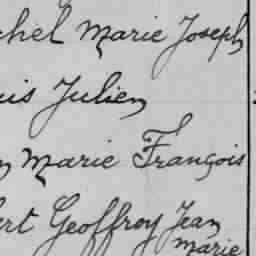 chel Marie Joseph
uis Julien
n Marie François
ert Geoffroy Jean
Marie